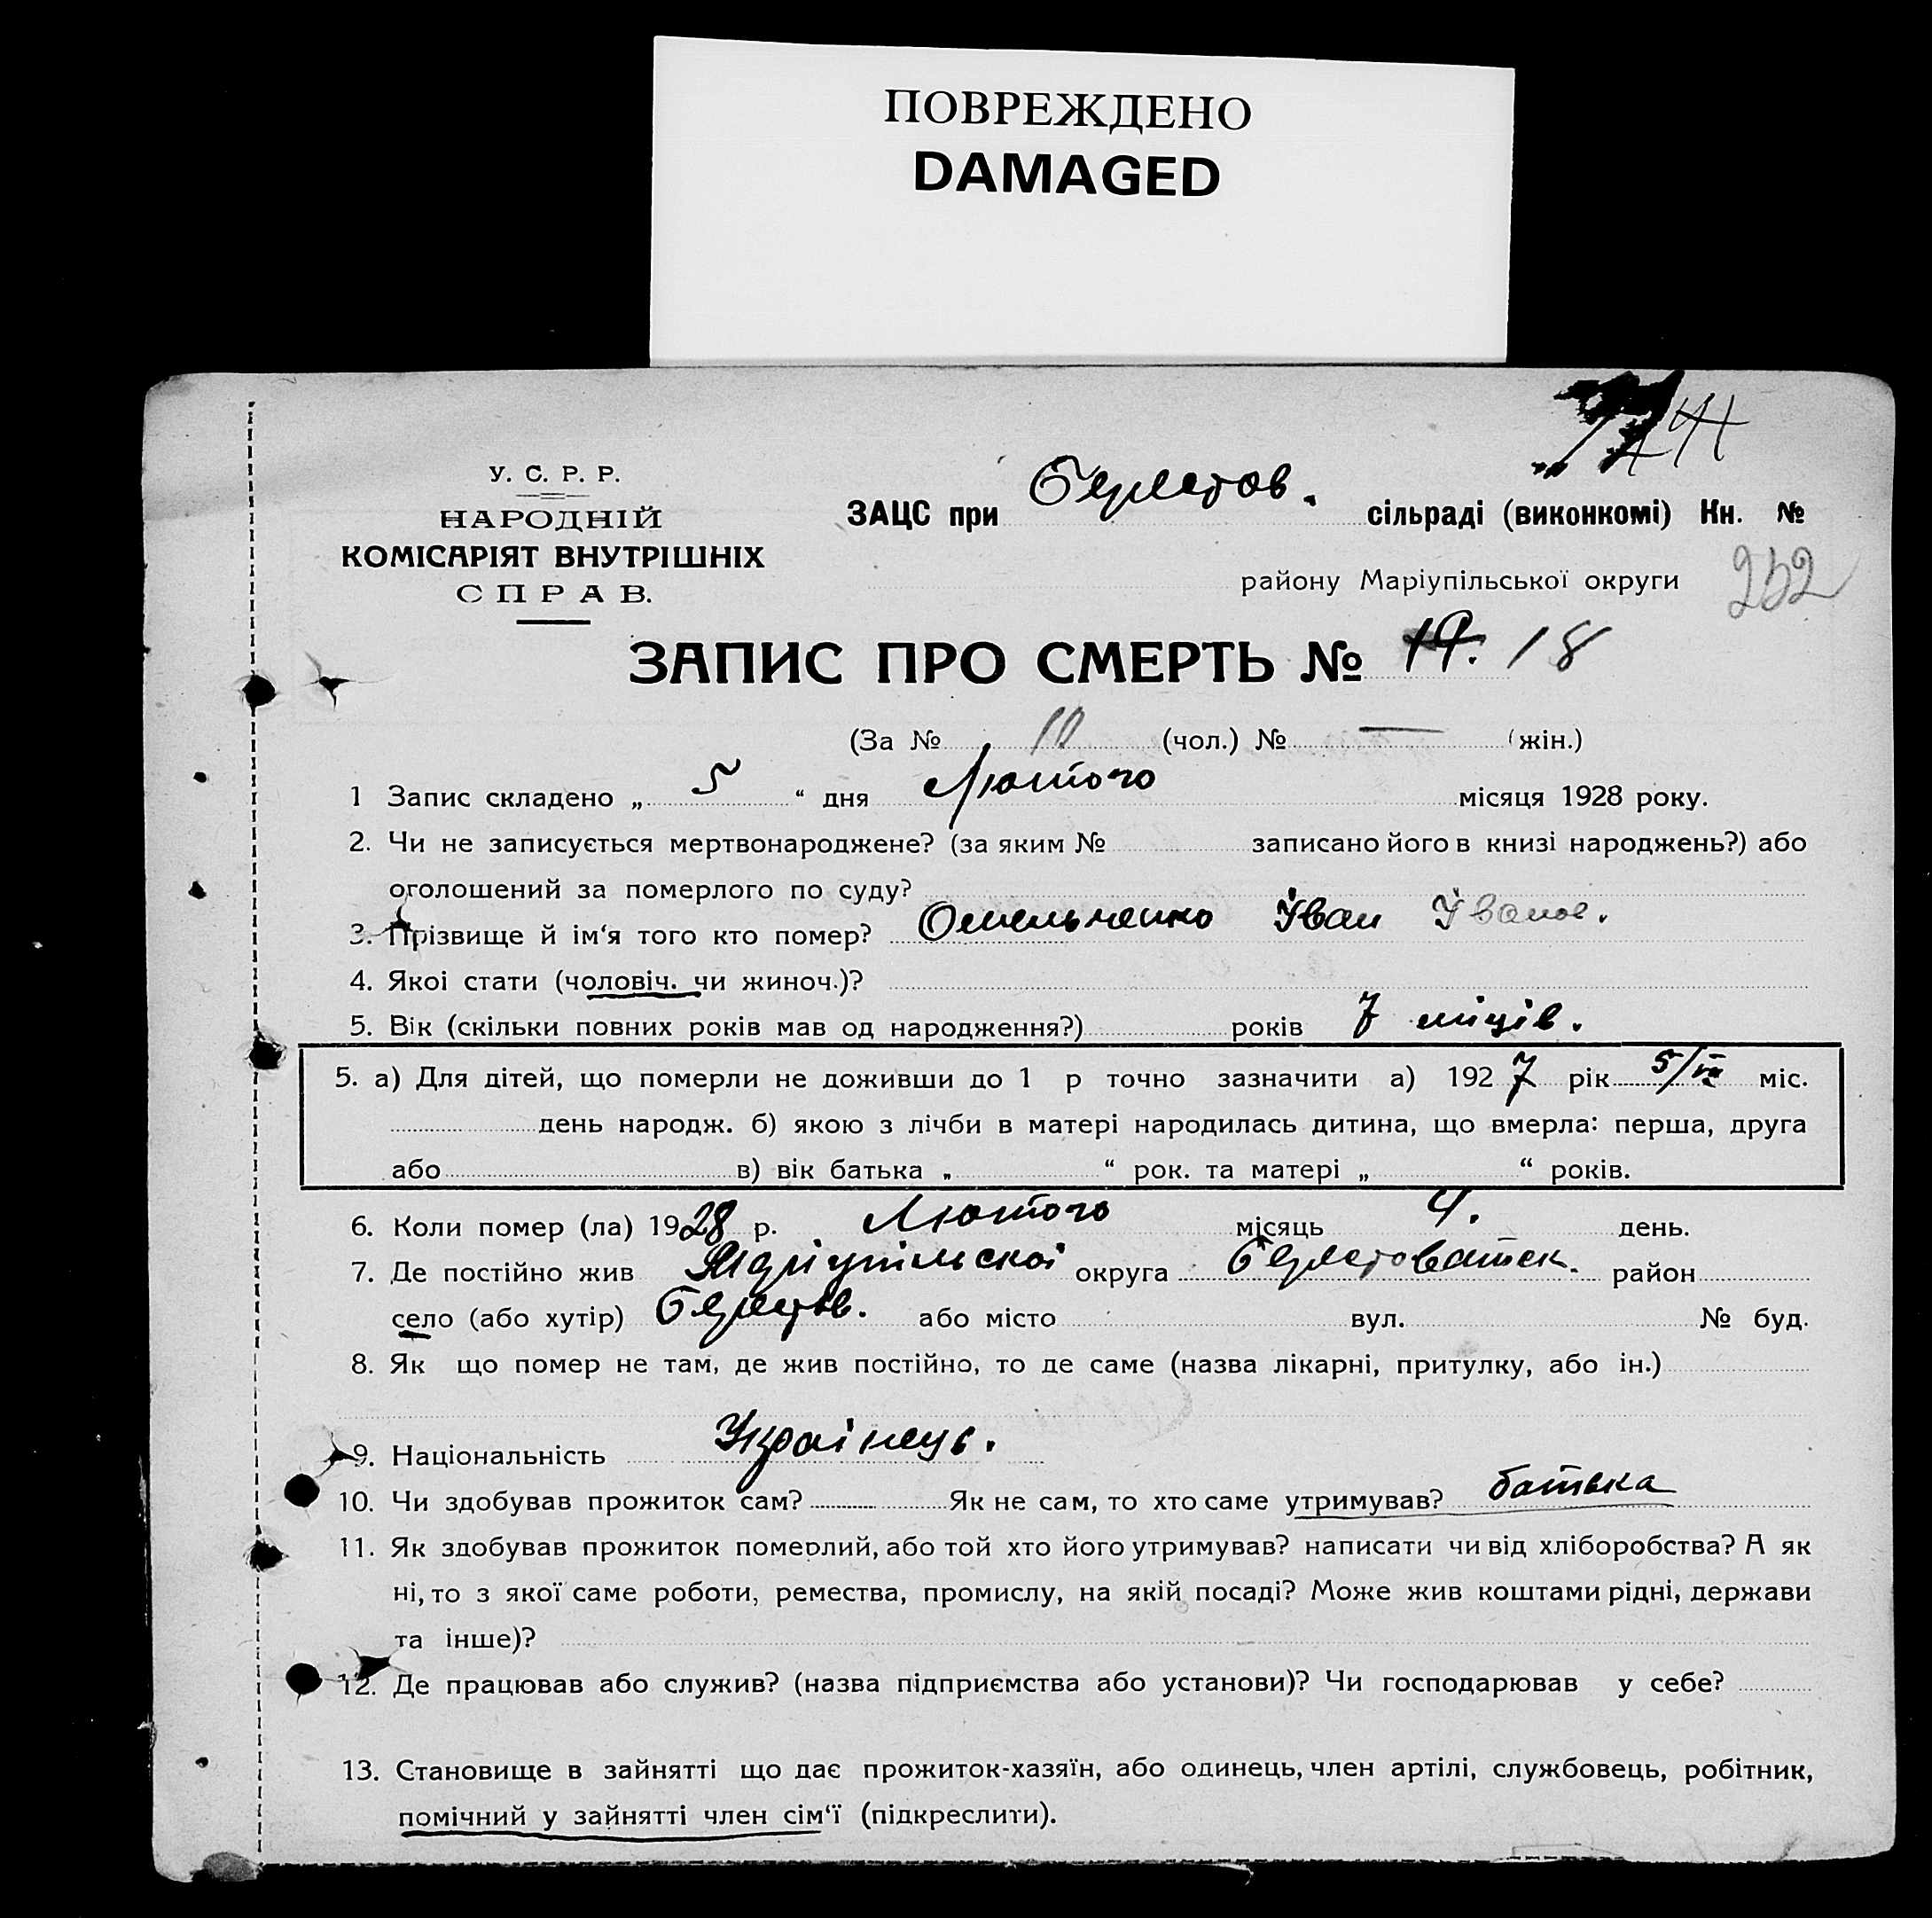 ПОВРЕЖДЕНО
DAMAGED
У. С. Р. Р.
НАРОДНІЙ
КОМІСАРІЯТ ВНУТРІШНІХ
СПРАВ.
ЗАЦС при Берестов. сільраді (виконкомі) Кн. №
району Маріупільської округи 252
ЗАПИС ПРО СМЕРТЬ № 18
(За № 10 (чол.) № — (жін.)
1 Запис складено „ 5 “ дня Лютого місяця 1928 року.
2. Чи не записується мертвонароджене? (за яким № записано його в книзі народжень?) або
оголошений за померлого по суду?
3. Прізвище й ім‘я того кто помер? Омельченко Іван Іванов.
4. Якоі стати (чоловіч. чи жиноч.)?
5. Вік (скільки повних років мав од народження?) років 7 місців.
5. а) Для дітей, що померли не доживши до 1 р точно зазначити а) 1927 рік 5/VII міс.
день народж. б) якою з лічби в матері народилась дитина, що вмерла: перша, друга
або в) вік батька „ “ рок. та матері „ “ років.
6. Коли помер (ла) 1928 р. Лютого місяць 4. день.
7. Де постійно жив Маріупільскоі округа Берестоватск. район
село (або хутір) Берестов. або місто вул. № буд.
8. Як що помер не там, де жив постійно, то де саме (назва лікарні, притулку, або ін.)
9. Національність Украінець.
10. Чи здобував прожиток сам? Як не сам, то хто саме утримував? батька
11. Як здобував прожиток померлий, або той хто його утримував? написати чи від хліборобства? А як
ні, то з якої саме роботи, ремества, промислу, на якій посаді? Може жив коштами рідні, держави
та інше)?
12. Де працював або служив? (назва підприємства або установи)? Чи господарював у себе?
13. Становище в зайнятті що дає прожиток-хазяїн, або одинець, член артілі, службовець, робітник,
помічний у зайнятті член сім‘ї (підкреслити).